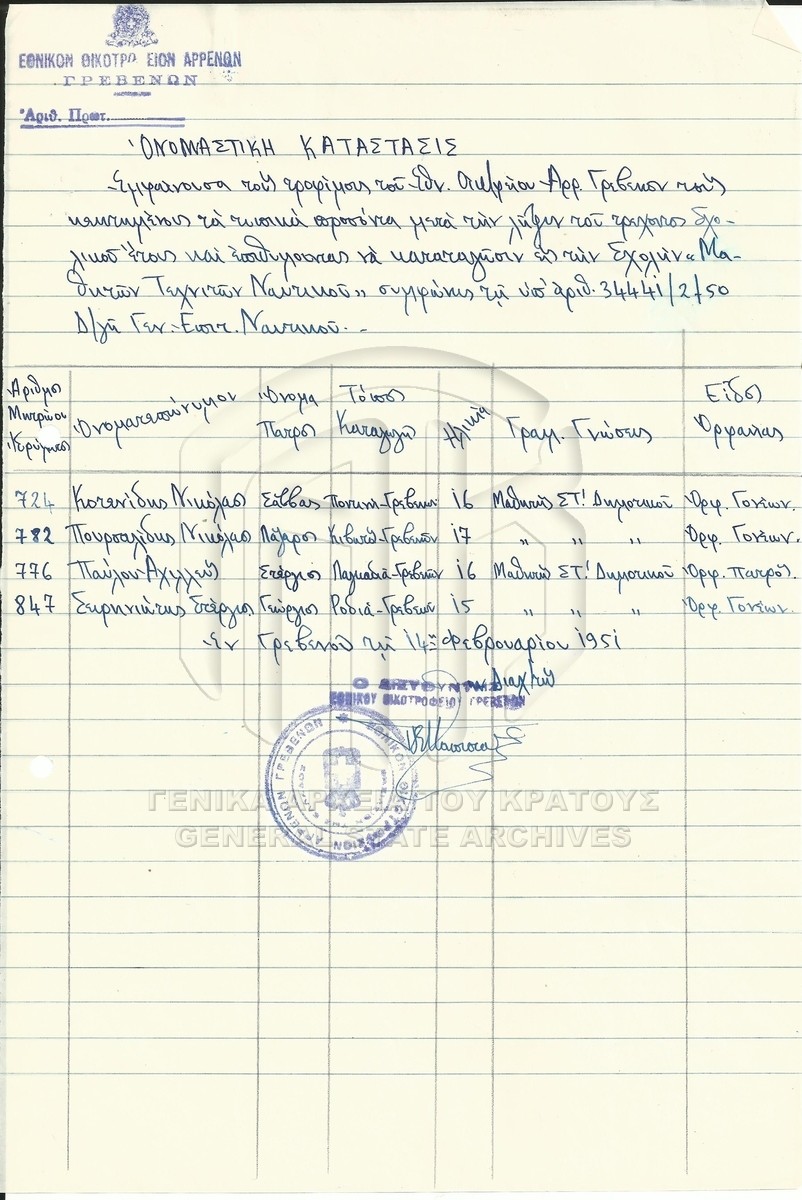 ΕΘΝΙΚΟΝ ΟΙΚΟΤΡΟ ΕΙΟΝ ΑΡΡΕΝΩΝ
ΓΡΕΒΕΝΩΝ
Ἀριθ. Πρωτ.
ὈΝΟΜΑΣΤΙΚΗ ΚΑΤΑΣΤΑΣΙΣ
Ἐμφαίνουσα τοὺς τροφίμους τοῦ Ἐθν. Οικ/φείου Ἀρρ. Γρεβενῶν τοὺς
κεκτημένους τὰ τυπικά προσόντα μετά τὴν λῆξιν τοῦ τρέχοντος Σχο-
λικοῦ ἔτους καὶ ἐπιθυμοῦντας νὰ καταταγῶσιν εἰς τὴν Σχολὴν «Μα-
θητῶν Τεχνιτῶν Ναυτικοῦ» συμφώνως τῇ ὑπ' ἀριθ. 34441/2/50
Δ/γῇ Γεν. Ἐπιτ. Ναυτικοῦ. -
Ἀριθμὸς Μητρώου Ἱδρύματος | Ὀνοματεπώνυμον | Ὄνομα Πατρὸς | Τόπος Καταγωγῆς | Ἡλικία | Γραμ. Γνώσεις | Εἶδος Ὀρφανίας
724 Κοτανίδης Νικόλαος Σάββας Ποντινή-Γρεβενῶν 16 Μαθητὴς ΣΤ! Δημοτικοῦ Ὀρφ. Γονέων.
782 Πουρσαλίδης Νικόλαος Λάζαρος Κιβωτὸ-Γρεβενῶν 17 " " " Ὀρφ. Γονέων.
776 Παύλου Ἀχιλλεὺς Στέργιος Παλιουριά-Γρεβενῶν 16 Μαθητὴς ΣΤ! Δημοτικοῦ Ὀρφ. Πατρός.
847 Στέργιος Γεώργιος Ροδιά-Γρεβενῶν 15 " " " Ὀρφ. Γονέων.
Ἐν Γρεβενοῖς τῇ 14ῃ Φεβρουαρίου 1951
Ο ΔΙΕΥΘΥΝΤΗΣ
ΕΘΝΙΚΟΥ ΟΙΚΟΤΡΟΦΕΙΟΥ ΓΡΕΒΕΝΩΝ
ΕΘΝΙΚΟΝ ΟΙΚΟΤΡΟΦΕΙΟΝ ΑΡΡΕΝΩΝ ΓΡΕΒΕΝΩΝ
ΓΕΝΙΚΑ ΑΡΧΕΙΑ ΤΟΥ ΚΡΑΤΟΥΣ
GENERAL STATE ARCHIVES